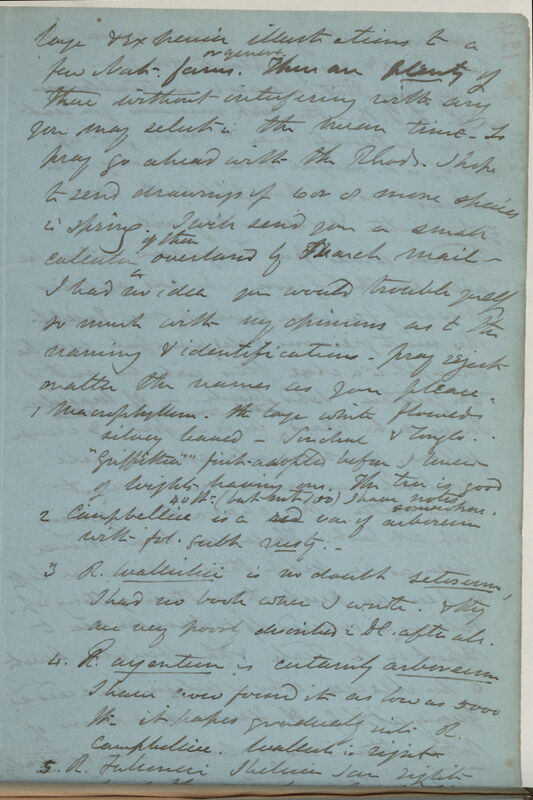 large & expensive illustrations to a
or genera
few Nat. fams. There are plenty of
these without interfering with any
you may select in the mean time. So
pray go ahead with the Rhods. I hope
to send drawings of 6 or 8 more species
in spring. I will send you a small
of them
collection overland by March mail —
I had no idea you would trouble yrself
so much with my opinions as to the
naming & identifications. pray reject
or alter the names as you please.
1 Macrophyllum. the large white flowered
silvery leaved — Sinchul & Tonglo.
"Griffithii" first adopted before I knew
of Wight having one. The tree is good
40 ft. (but not 100) I have noted
somewhere.
2 Campbelliæ is a var of arboreum
with fol. subtr rusty. —
3 R. Wallichii is no doubt setosum,
I had no book when I wrote. & they
are very poorly described in DC. after all.
4. R. argenteum is certainly arboreum
I have now found it as low as 5000
ft. it passes gradually into R.
Campbelliæ. Wallich is right
5. R. Falconeri I believe I am right